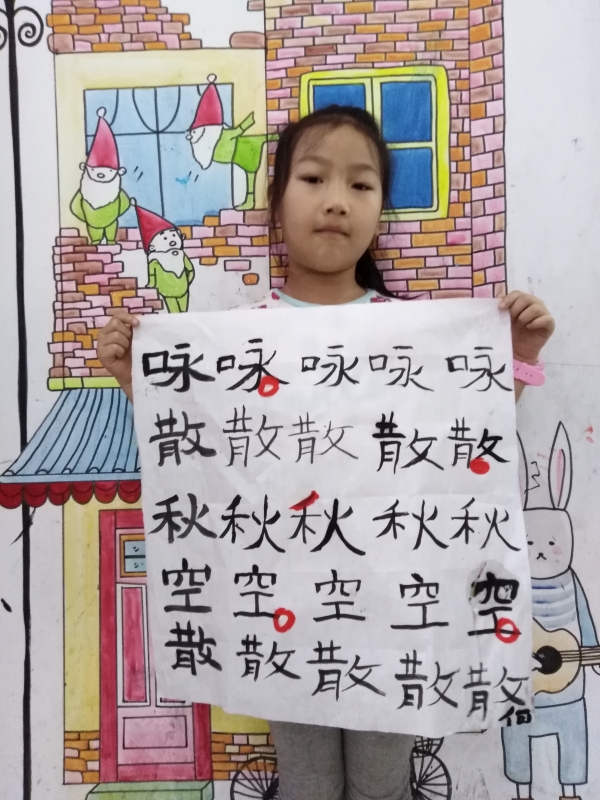 咏咏咏咏咏
散散散散散
秋秋秋秋秋
空空空空空
散散散散散
伯